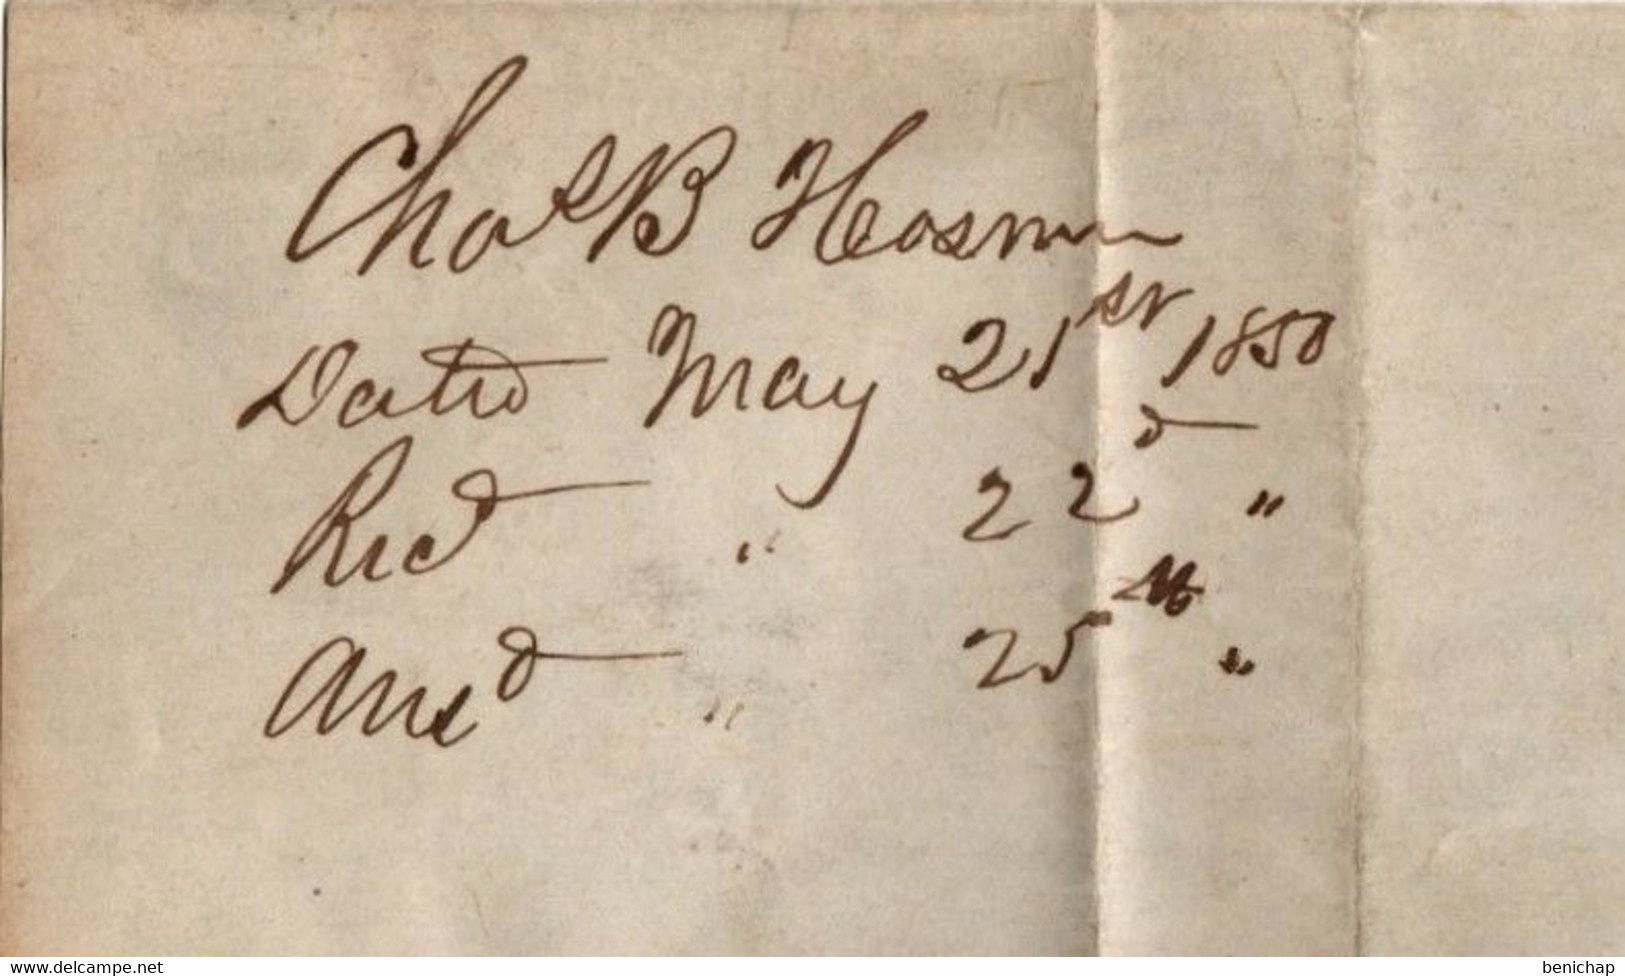 Chas B Hosmer
Dated May 21st 1850
Recd " 22d "
Ansd " 25th "
www.delcampe.net
benichap